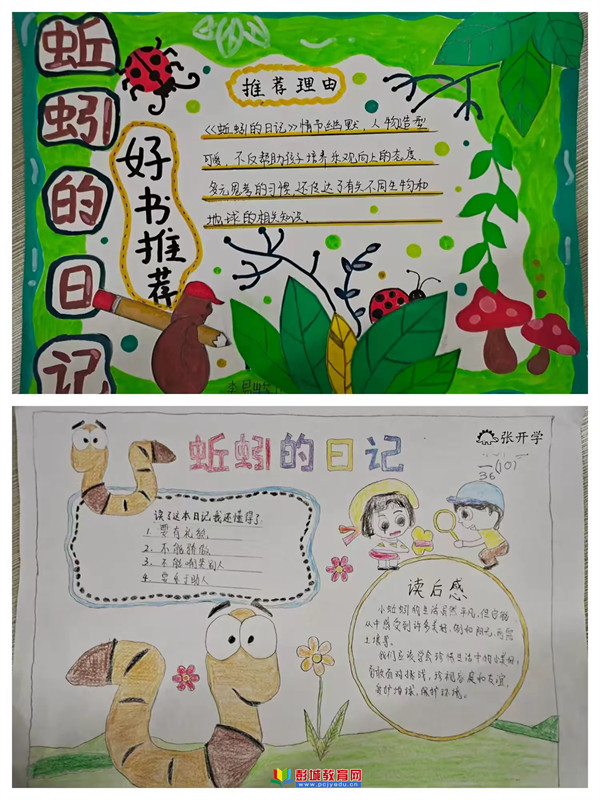 蚯蚓的日记
好书推荐
推荐理由
《蚯蚓的日记》情节幽默,人物造型
可爱,不仅帮助孩子培养乐观向上的态度、
多元思考的习惯,还传达了有关不同生物和
地球的相关知识。
蚯蚓的日记
张开学
36
读了这本日记我还懂得了:
1. 要有礼貌
2. 不能骄傲
3. 不能嘲笑别人
4. 要乐于助人
读后感
小蚯蚓的生活虽然平凡,但它能
从中感受到许多美好,例如阳光,雨露
土壤等。
我们应该学会珍惜生活中的小美好,
勇敢面对挑战,珍视家庭和友谊,
彭城教育网
www.pcjyedu.cn